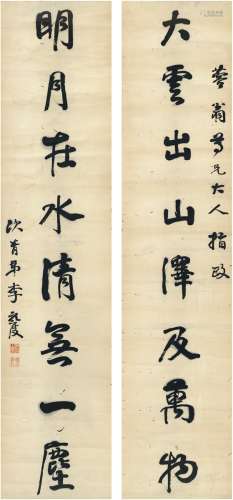 蓉翁尊兄大人指政
大雲出山澤及萬物
明月在水清無一塵
次青弟李元度